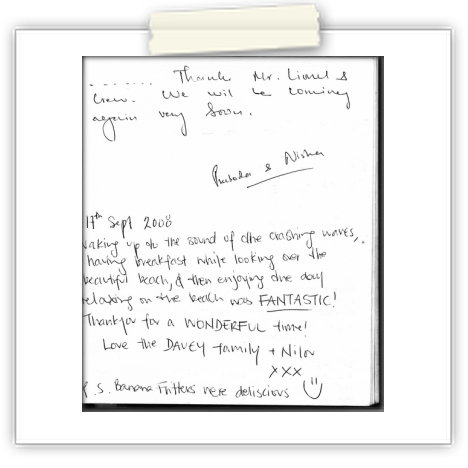 ....... Thank Mr. Lionel &
Crew. We will be coming
again very Soon.
& Nisha
17th Sept 2008
waking up to the sound of the crashing waves,
having breakfast while looking over the
beautiful beach, & then enjoying the day
relaxing on the beach was FANTASTIC!
Thankyou for a WONDERFUL time!
Love the DAVEY family + Nilou
xxx
P.S. Banana Fritters were deliscious